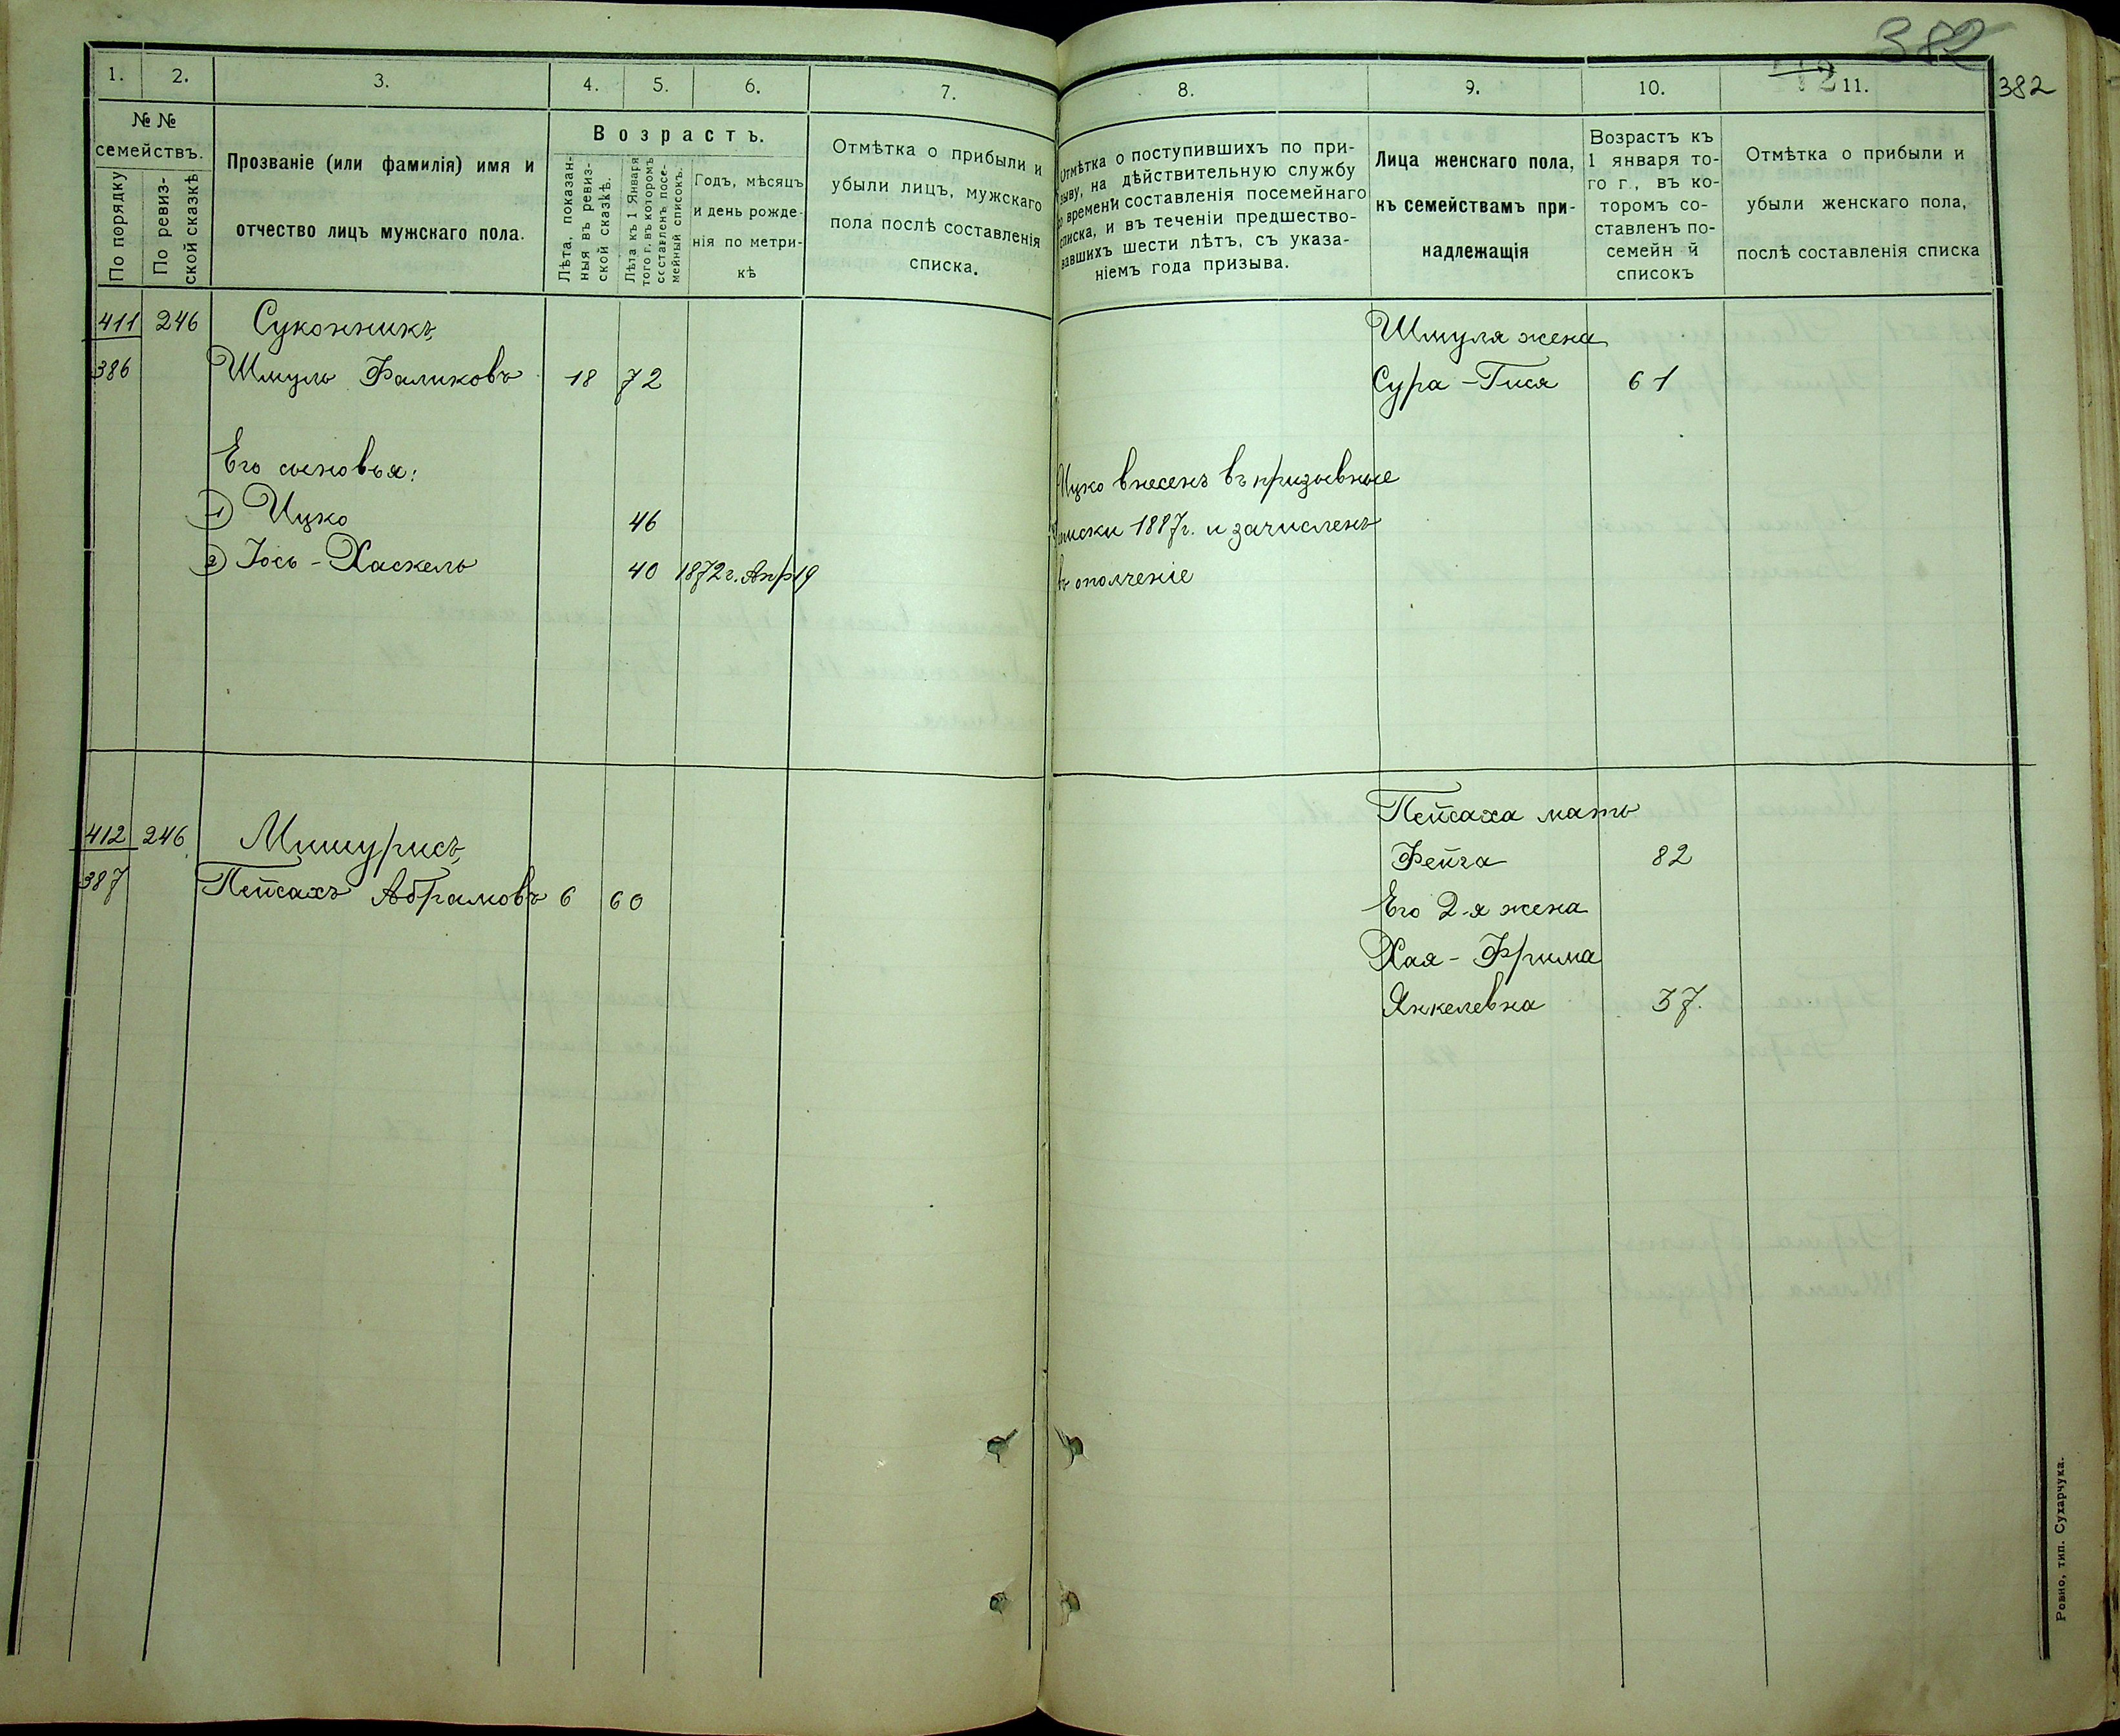 382
382
12
1.
2.
3.
4.
5.
6.
7.
8.
9.
10.
11.
№ №
семействъ.
По порядку
По ревиз-
ской сказкѣ
Прозваніе (или фамилія) имя и
отчество лицъ мужскаго пола.
Возрастъ.
Лѣта, показан-
ныя въ ревиз-
ской сказкѣ.
Лѣта къ 1 Января
того г. въ которомъ
составленъ посе-
мейный списокъ.
Годъ, мѣсяцъ
и день рожде-
нія по метри-
кѣ
Отмѣтка о прибыли и
убыли лицъ, мужскаго
пола послѣ составленія
списка.
Отмѣтка о поступившихъ по при-
зыву, на дѣйствительную службу
времени составленія посемейнаго
списка, и въ теченіи предшество-
вавшихъ шести лѣтъ, съ указа-
ніемъ года призыва.
Лица женскаго пола,
къ семействамъ при-
надлежащія
Возрастъ къ
1 января то-
го г., въ ко-
торомъ со-
ставленъ по-
семейн й
списокъ
Отмѣтка о прибыли и
убыли женскаго пола,
послѣ составленія списка
411 246 Суконникъ,
386 Шмуль Фаликовъ 18 72
Его сыновья:
1) Ицко 46
2) Іось-Хаскель 40 1872г. Апр 19
Ицко внесенъ въ призывные
списки 1887г. и зачисленъ
въ ополченіе
Шмуля жена
Сура-Тися 61
412 246 Мишурисъ,
387 Пейсахъ Абрамовъ 6 60
Пейсаха мать
Фейга 82
Его 2-я жена
Хая-Фрима
Янкелевна 37.
Ровно, тип. Сухарчука.